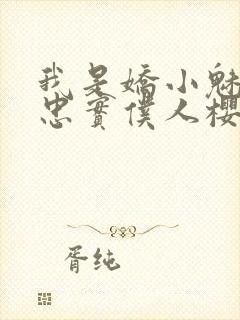 我是嬌小魅
忠實僕人櫻
胥纯